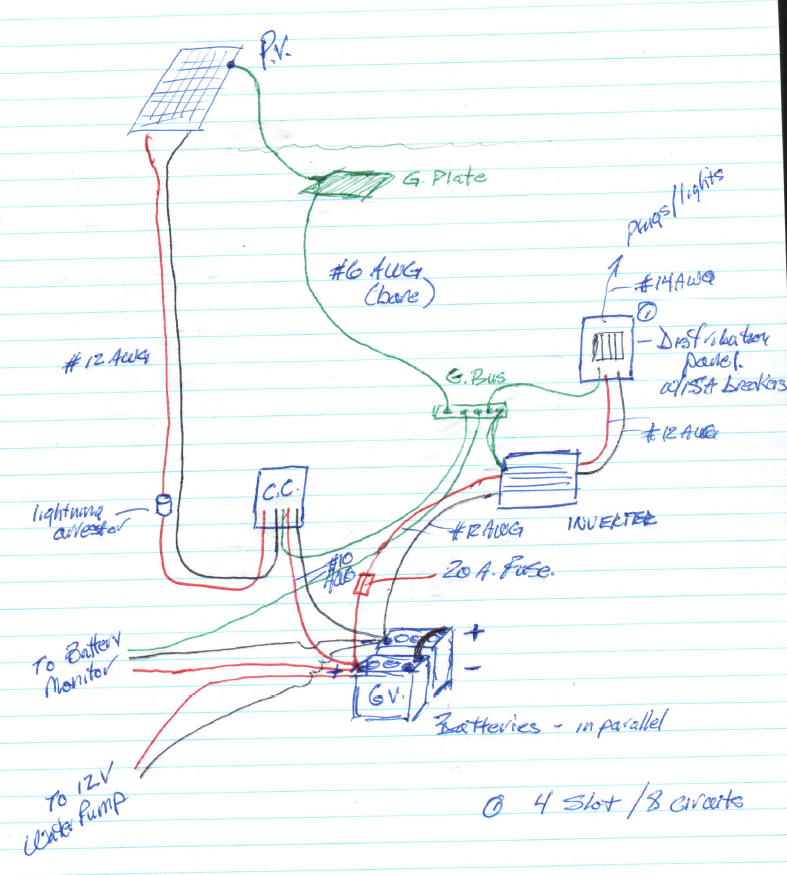 P.V.
G. Plate
plugs/lights
#6 AWG
(bare)
#14 AWG
①
Distribution
panel.
w/15A breakers
# 12 AWG
G. Bus
#12 AWG
C.C.
lightning
arrestor
#12 AWG
INVERTER
#10
AWG
20 A. Fuse.
To Battery
Monitor
+
-
+
6V.
Batteries - in parallel
To 12V
Water Pump
① 4 Slot / 8 circuits